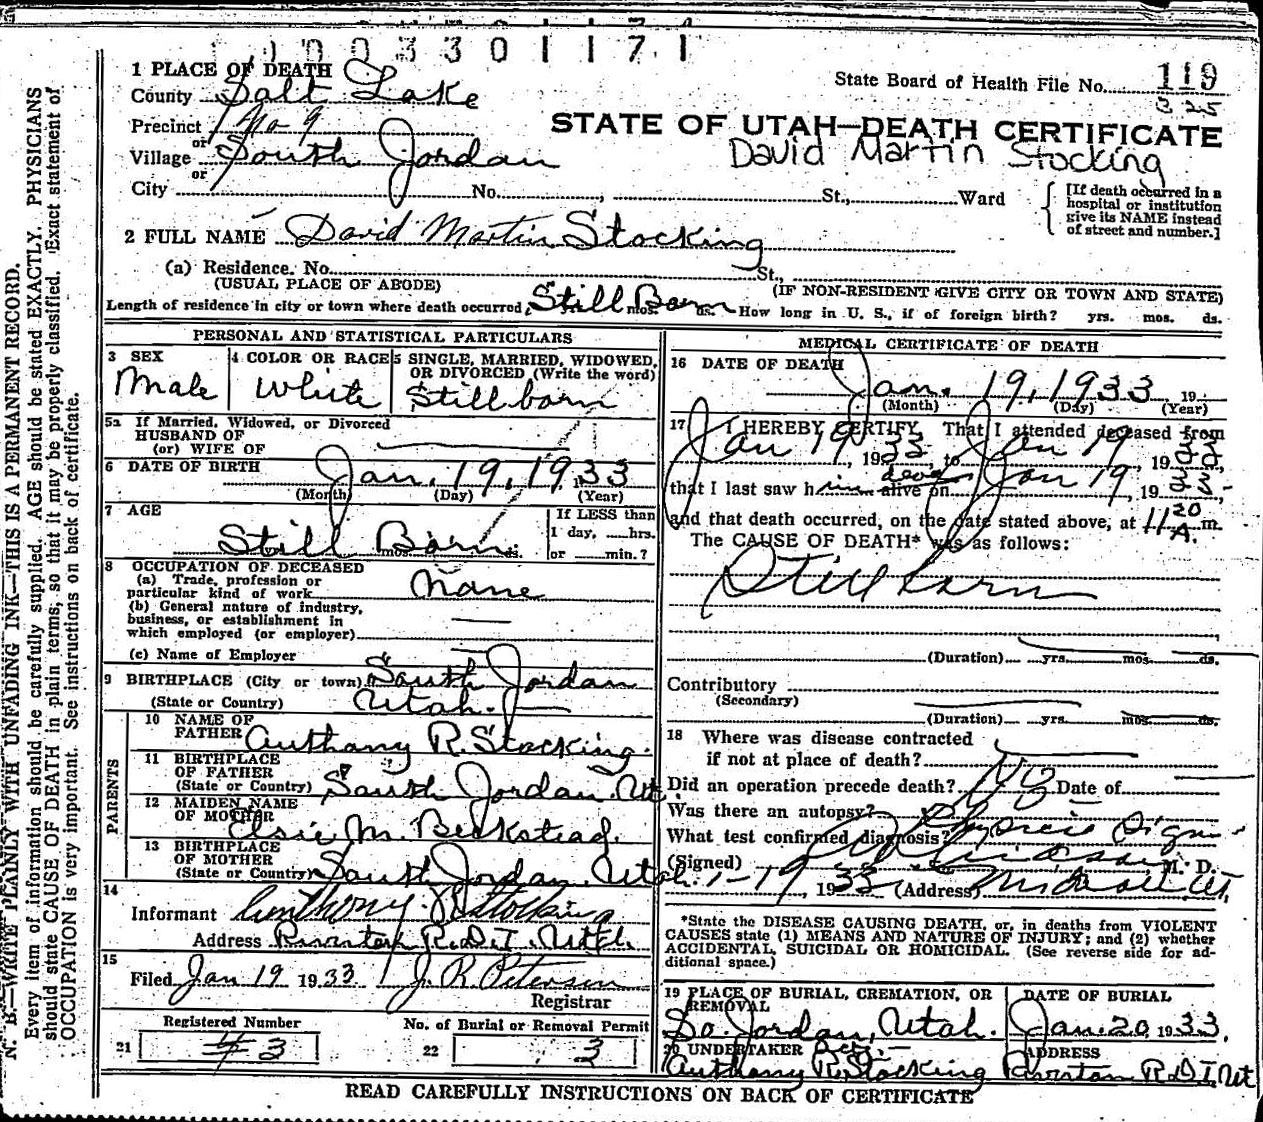 1003301171
1 PLACE OF DEATH
State Board of Health File No. 119
County Salt Lake
325
Precinct No 9
STATE OF UTAH—DEATH CERTIFICATE
or
Village South Jordan
David Martin Stocking
or
City No. , St., Ward
[If death occurred in a hospital or institution give its NAME instead of street and number.]
2 FULL NAME David Martin Stocking
(a) Residence. No. St.,
(USUAL PLACE OF ABODE) (IF NON-RESIDENT GIVE CITY OR TOWN AND STATE)
Length of residence in city or town where death occurred, Still Born mos. ds. How long in U. S., if of foreign birth? yrs. mos. ds.
PERSONAL AND STATISTICAL PARTICULARS
3 SEX
Male
4 COLOR OR RACE
White
5 SINGLE, MARRIED, WIDOWED, OR DIVORCED (Write the word)
Stillborn
5a If Married, Widowed, or Divorced
HUSBAND OF
(or) WIFE OF
6 DATE OF BIRTH Jan. 19, 1933
(Month) (Day) (Year)
7 AGE
If LESS than
1 day, hrs.
or min.?
Still Born mos. ds.
8 OCCUPATION OF DECEASED
(a) Trade, profession or
particular kind of work None
(b) General nature of industry,
business, or establishment in
which employed (or employer)
(c) Name of Employer
9 BIRTHPLACE (City or town) South Jordan
(State or Country) Utah.
PARENTS
10 NAME OF
FATHER Anthony R. Stocking.
11 BIRTHPLACE
OF FATHER
(State or Country) South Jordan. Ut.
12 MAIDEN NAME
OF MOTHER Elsie M. Beckstead.
13 BIRTHPLACE
OF MOTHER
(State or Country) South Jordan. Utah.
14
Informant Anthony R Stocking
Address Riverton R.D.1. Utah.
15
Filed Jan 19 1933 J. R. Peterson
Registrar
Registered Number
21 3
No. of Burial or Removal Permit
22 3
MEDICAL CERTIFICATE OF DEATH
16 DATE OF DEATH
Jan. 19, 1933 19
(Month) (Day) (Year)
17 I HEREBY CERTIFY That I attended deceased from
Jan 19, 1933 to Jan 19, 1933
that I last saw him alive on dead Jan 19, 1933
and that death occurred, on the date stated above, at 11 20 A. m.
The CAUSE OF DEATH* was as follows:
Stillborn
(Duration) yrs. mos. ds.
Contributory
(Secondary)
(Duration) yrs. mos. ds.
18 Where was disease contracted
if not at place of death?
Did an operation precede death? No Date of
Was there an autopsy?
What test confirmed diagnosis? Physical Signs
(Signed) M. D.
1-19, 1933 (Address) Midvale Ut.
*State the DISEASE CAUSING DEATH, or, in deaths from VIOLENT
CAUSES state (1) MEANS AND NATURE OF INJURY; and (2) whether
ACCIDENTAL, SUICIDAL OR HOMICIDAL. (See reverse side for ad-
ditional space.)
19 PLACE OF BURIAL, CREMATION, OR
REMOVAL
So. Jordan, Utah.
DATE OF BURIAL
Jan. 20, 1933.
20 UNDERTAKER
Anthony R. Stocking
ADDRESS
Riverton R.D.1. Ut
READ CAREFULLY INSTRUCTIONS ON BACK OF CERTIFICATE
N. B.—WRITE PLAINLY WITH UNFADING INK—THIS IS A PERMANENT RECORD.
Every item of information should be carefully supplied. AGE should be stated EXACTLY. PHYSICIANS
should state CAUSE OF DEATH in plain terms, so that it may be properly classified. Exact statement of
OCCUPATION is very important. See instructions on back of certificate.